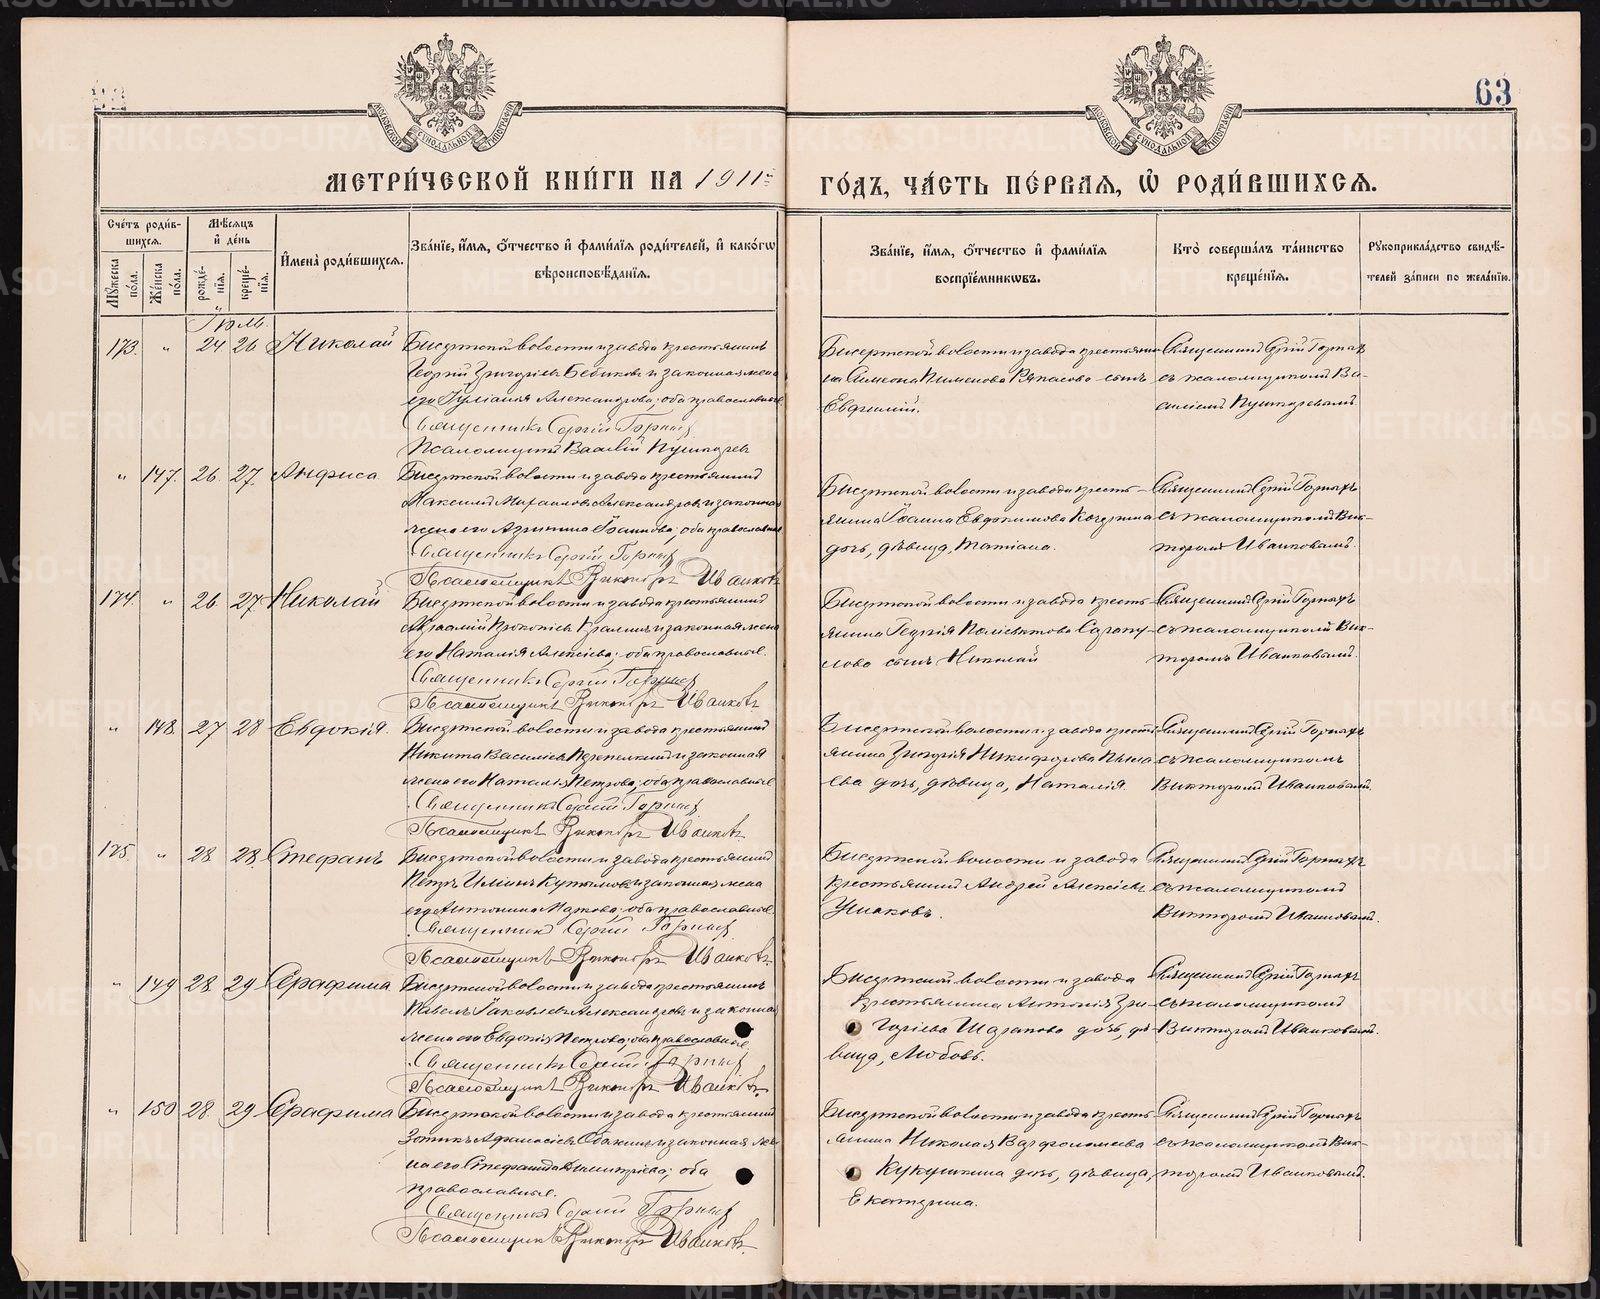 63
МЕТРИ́ЧЕСКОЙ КНИ́ГИ НА 1911й ГО́ДЪ, ЧА́СТЬ ПЕ́РВАЯ, Ѡ РОДИ́ВШИХСЯ.
Сче́тъ роди́в-
шихся.
Му́жеска по́ла.
Же́нска по́ла.
Мѣ́сяцъ и де́нь
рожде́-
нія.
креще́-
нія.
Имена̀ роди́вшихся.
Зва́нїе, и́мя, о́тчество и фами́лїя роди́телей, и како́гѡ
вѣроисповѣ́данїя.
Зва́нїе, и́мя, о́тчество и фами́лїя
воспрїе́мникѡвъ.
Кто̀ соверша́лъ та́инство
креще́нїя.
Рукоприкла́дство свидѣ́-
телей за́писи по жела́нїю.
173. " 24 26 Николай
Бисертской волости и завода крестьянинъ
Георгій Григорьевъ Бебиковъ и законная жена
его Іуліанія Александрова, оба православные.
Священникъ Сергій Горныхъ
Псаломщикъ Василій Пушкаревъ
Бисертской волости и завода крестьяни-
на Симеона Пименова сынъ
Евгеній.
Священникъ Сергій Горныхъ
съ псаломщикомъ Ва-
силіемъ Пушкаревымъ.
" 147. 26 27 Анфиса
Бисертской волости и завода крестьянинъ
Максимъ Михаиловъ Александровъ и законная
жена его Іоаннова, оба православные
Священникъ Сергій Горныхъ
Псаломщикъ Викторъ Иваиковъ
Бисертской волости и завода кресть-
янина Іоанна Евфимова
дочь, дѣвица, Татіана.
Священникъ Сергій Горныхъ
съ псаломщикомъ Вик-
торомъ Иваиковымъ.
174. " 26 27 Николай
Бисертской волости и завода крестьянинъ
Прокопьевъ и законная жена
его Наталія Алексіева, оба православные.
Священникъ Сергій Горныхъ
Псаломщикъ Викторъ Иваиковъ
Бисертской волости и завода кресть-
янина Георгія Сарапу-
лова сынъ Николай
Священникъ Сергій Горныхъ
съ псаломщикомъ Вик-
торомъ Иваиковымъ.
" 148. 27 28 Евдокія.
Бисертской волости и завода крестьянинъ
Никита Васильевъ и законная
жена его Наталія Петрова, оба православные
Священникъ Сергій Горныхъ
Псаломщикъ Викторъ Иваиковъ
Бисертской волости и завода кресть-
янина Григорія Никифорова
ева дочь, дѣвица, Наталія.
Священникъ Сергій Горныхъ
съ псаломщикомъ
Викторомъ Иваиковымъ.
175. " 28 28 Стефанъ
Бисертской волости и завода крестьянинъ
Петръ и законная жена
его Антонина Маркова, оба православные.
Священникъ Сергій Горныхъ
Псаломщикъ Викторъ Иваиковъ
Бисертской волости и завода
крестьянинъ Андрей Алексіевъ
Ушаковъ.
Священникъ Сергій Горныхъ
съ псаломщикомъ
Викторомъ Иваиковымъ.
" 149 28 29 Серафима
Бисертской волости и завода крестьянинъ
Павелъ Іаковлевъ Александровъ и законная
жена его Евдокія Петрова, оба православные.
Священникъ Сергій Горныхъ
Псаломщикъ Викторъ Иваиковъ
Бисертской волости и завода
крестьянина Антонія Гри-
горіева дочь, дѣ-
вица, Любовь.
Священникъ Сергій Горныхъ
съ псаломщикомъ
Викторомъ Иваиковымъ.
" 150 28 29 Серафима
Бисертской волости и завода крестьянинъ
Зотикъ Афанасіевъ и законная же-
на его Стефанида Димитріева, оба
православные.
Священникъ Сергій Горныхъ
Псаломщикъ Викторъ Иваиковъ
Бисертской волости и завода кресть-
янина Николая Варфоломеева
Кукушкина дочь, дѣвица,
Екатерина.
Священникъ Сергій Горныхъ
съ псаломщикомъ Вик-
торомъ Иваиковымъ.
METRIKI.GASO-URAL.RU